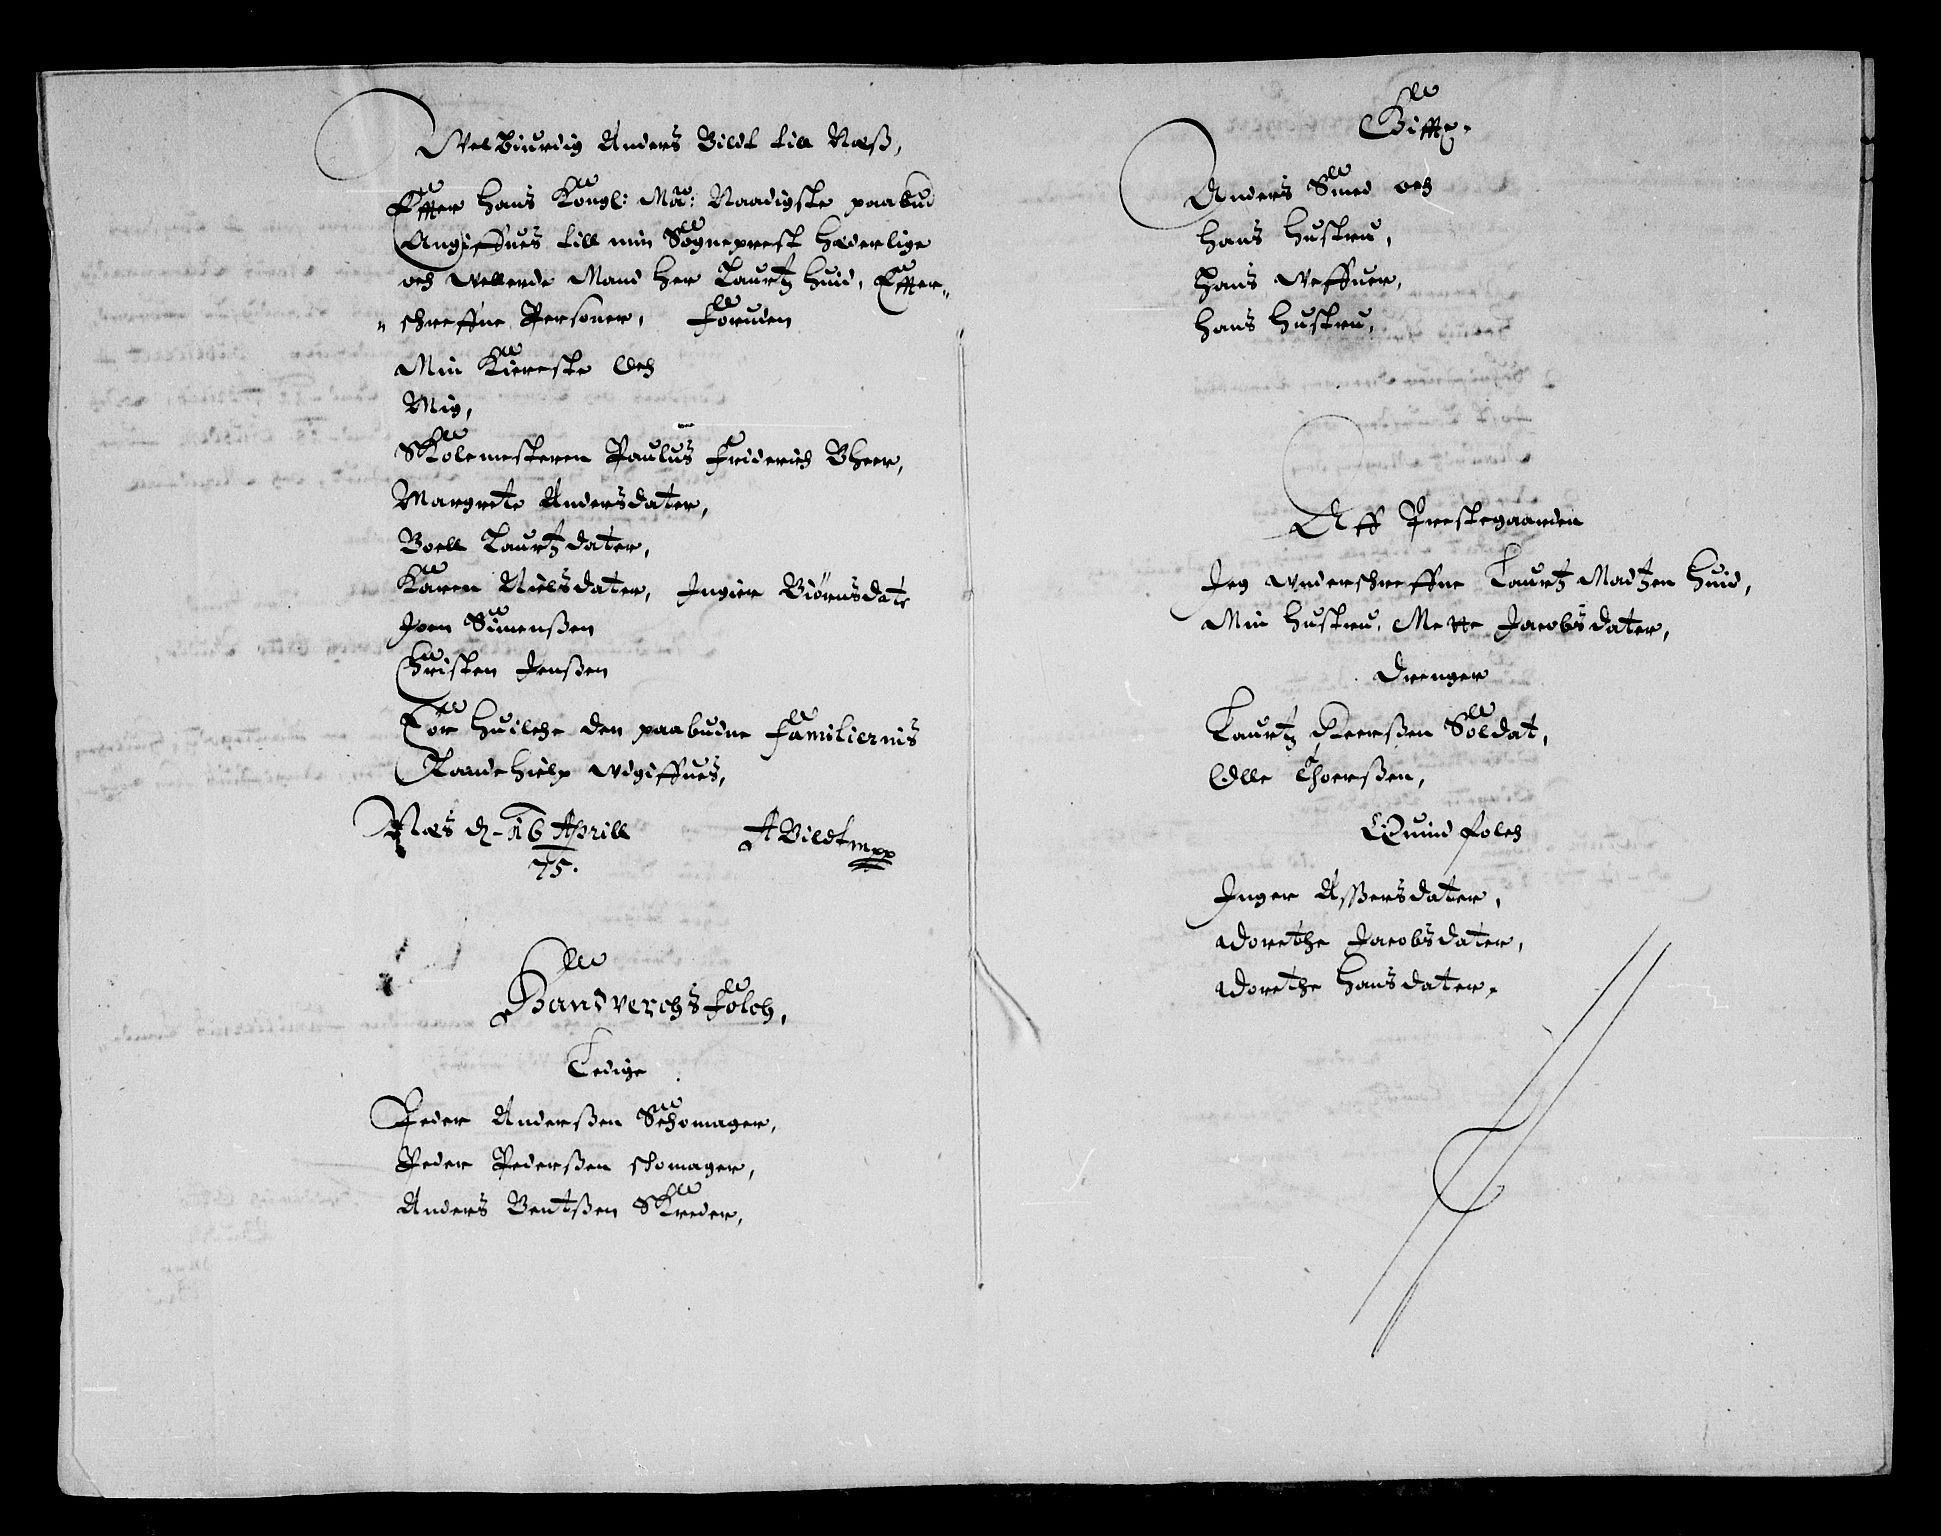 Welbiurdig Anders Bildt till Næß,
Effter hans Kongl: Ma: Naadigste paabud
Angiffues till min Sogneprest hæderlige
och wellerde Mand her Laurtz Huid, Effter-
schreffne Personer, Foruden
Min Kiereste Och
Mig,
Skolemesteren Paulus Friderich Bheer,
Margrete Andersdater,
Boell Laurtzdater,
Karen Nielsdater, Ingier Biörnsdatr
Joen Simenßen
Christen Jenßen
For huilche den paabudne Familiernis
Landehielp udgiffues,
Næs d. 16 Aprill
75.
ABildt mpp
Handverchs Folch,
Ledige
Peder Anderßen Schomager,
Peder Pederßen schomager,
Anders Bentßen Skreder,
Giffte.
Anders Smed och
hans hustru,
Hans Weffuer,
hans hustru,
Aff Prestegaarden
Jeg underschreffne Laurtz Madtzen Huid,
Min hustru, Mette Jacobsdater,
Drenger
Laurtz Peerßen Soldat,
Olle Thoerßen,
Quind folch
Inger Aßersdater,
Dorethe Jacobsdater,
Dorethe Hansdater,